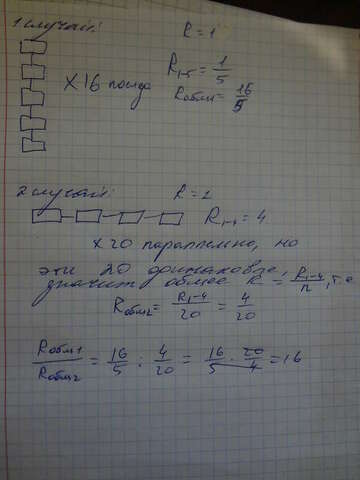 1 случай:
R = 1
R₁₋₅ = 1/5
x 16 послед
Rобщ1 = 16/5
2 случай:
R = 1
R₁₋₄ = 4
x 20 параллельно, но
эти 20 одинаковые,
значит общее R = R₁₋₄/n, т.е.
Rобщ2 = R₁₋₄/20 = 4/20
Rобщ1/Rобщ2 = 16/5 : 4/20 = 16/5 · 20/4 = 16